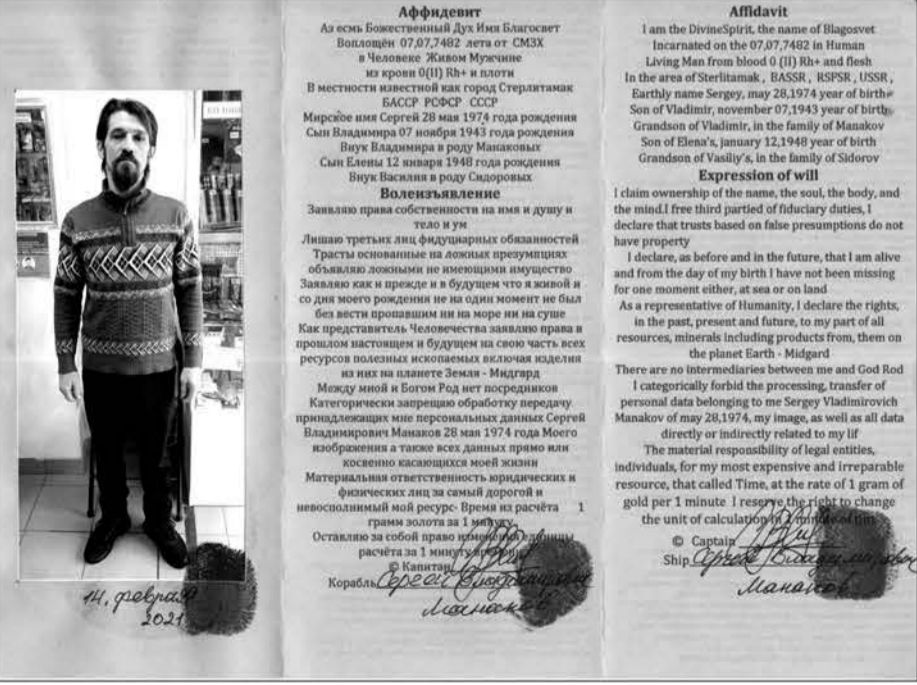 14, февраля
2021
Аффидевит
Аз есмь Божественный Дух Имя Благосвет
Воплощён 07,07,7482 лета от СМЗХ
в Человеке Живом Мужчине
из крови 0(II) Rh+ и плоти
В местности известной как город Стерлитамак
БАССР РСФСР СССР
Мирское имя Сергей 28 мая 1974 года рождения
Сын Владимира 07 ноября 1943 года рождения
Внук Владимира в роду Манаковых
Сын Елены 12 января 1948 года рождения
Внук Василия в роду Сидоровых
Волеизъявление
Заявляю права собственности на имя и душу и
тело и ум
Лишаю третьих лиц фидуциарных обязанностей
Трасты основанные на ложных презумпциях
объявляю ложными не имеющими имущество
Заявляю как и прежде и в будущем что я живой и
со дня моего рождения не на один момент не был
без вести пропавшим ни на море ни на суше
Как представитель Человечества заявляю права в
прошлом настоящем и будущем на свою часть всех
ресурсов полезных ископаемых включая изделия
из них на планете Земля - Мидгард
Между мной и Богом Род нет посредников
Категорически запрещаю обработку передачу
принадлежащих мне персональных данных Сергей
Владимирович Манаков 28 мая 1974 года Моего
изображения а также всех данных прямо или
косвенно касающихся моей жизни
Материальная ответственность юридических и
физических лиц за самый дорогой и
невосполнимый мой ресурс- Время из расчёта 1
грамм золота за 1 минуту
Оставляю за собой право изменения единицы
расчёта за 1 минуту времени
© Капитан
Корабль Сергей Владимирович
Манаков
Affidavit
I am the DivineSpirit, the name of Blagosvet
Incarnated on the 07,07,7482 in Human
Living Man from blood 0 (II) Rh+ and flesh
In the area of Sterlitamak , BASSR , RSPSR , USSR ,
Earthly name Sergey, may 28,1974 year of birth
Son of Vladimir, november 07,1943 year of birth
Grandson of Vladimir, in the family of Manakov
Son of Elena's, january 12,1948 year of birth
Grandson of Vasiliy's, in the family of Sidorov
Expression of will
I claim ownership of the name, the soul, the body, and
the mind.I free third partied of fiduciary duties, I
declare that trusts based on false presumptions do not
have property
I declare, as before and in the future, that I am alive
and from the day of my birth I have not been missing
for one moment either, at sea or on land
As a representative of Humanity, I declare the rights,
in the past, present and future, to my part of all
resources, minerals including products from, them on
the planet Earth - Midgard
There are no intermediaries between me and God Rod
I categorically forbid the processing, transfer of
personal data belonging to me Sergey Vladimirovich
Manakov of may 28,1974, my image, as well as all data
directly or indirectly related to my lif
The material responsibility of legal entities,
individuals, for my most expensive and irreparable
resource, that called Time, at the rate of 1 gram of
gold per 1 minute I reserve the right to change
the unit of calculation in 1 minute of tim
© Captain
Ship Сергей Владимирович
Манаков